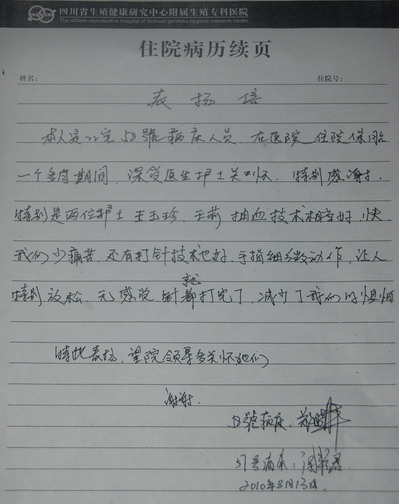 四川省生殖健康研究中心附属生殖专科医院
The affiliated reproductive hospital of Sichuan genitalia hygiene research center
住院病历续页
姓名: 住院号:
表扬信
本人是22室58號病床人员 在医院住院保胎
一个多月期间, 深受医生护士关 特别感谢,
特别是两位护士 王玉珍、王莉 抽血技术相当好, 快
我们少痛苦, 还有打针技术也好, 手指细 动作, 让人
特别放松, 无感觉針就都打完了, 减少了我们的
特此表扬, 望院领导多关怀她们
谢谢.
號病床
号病床
2010年8月13日